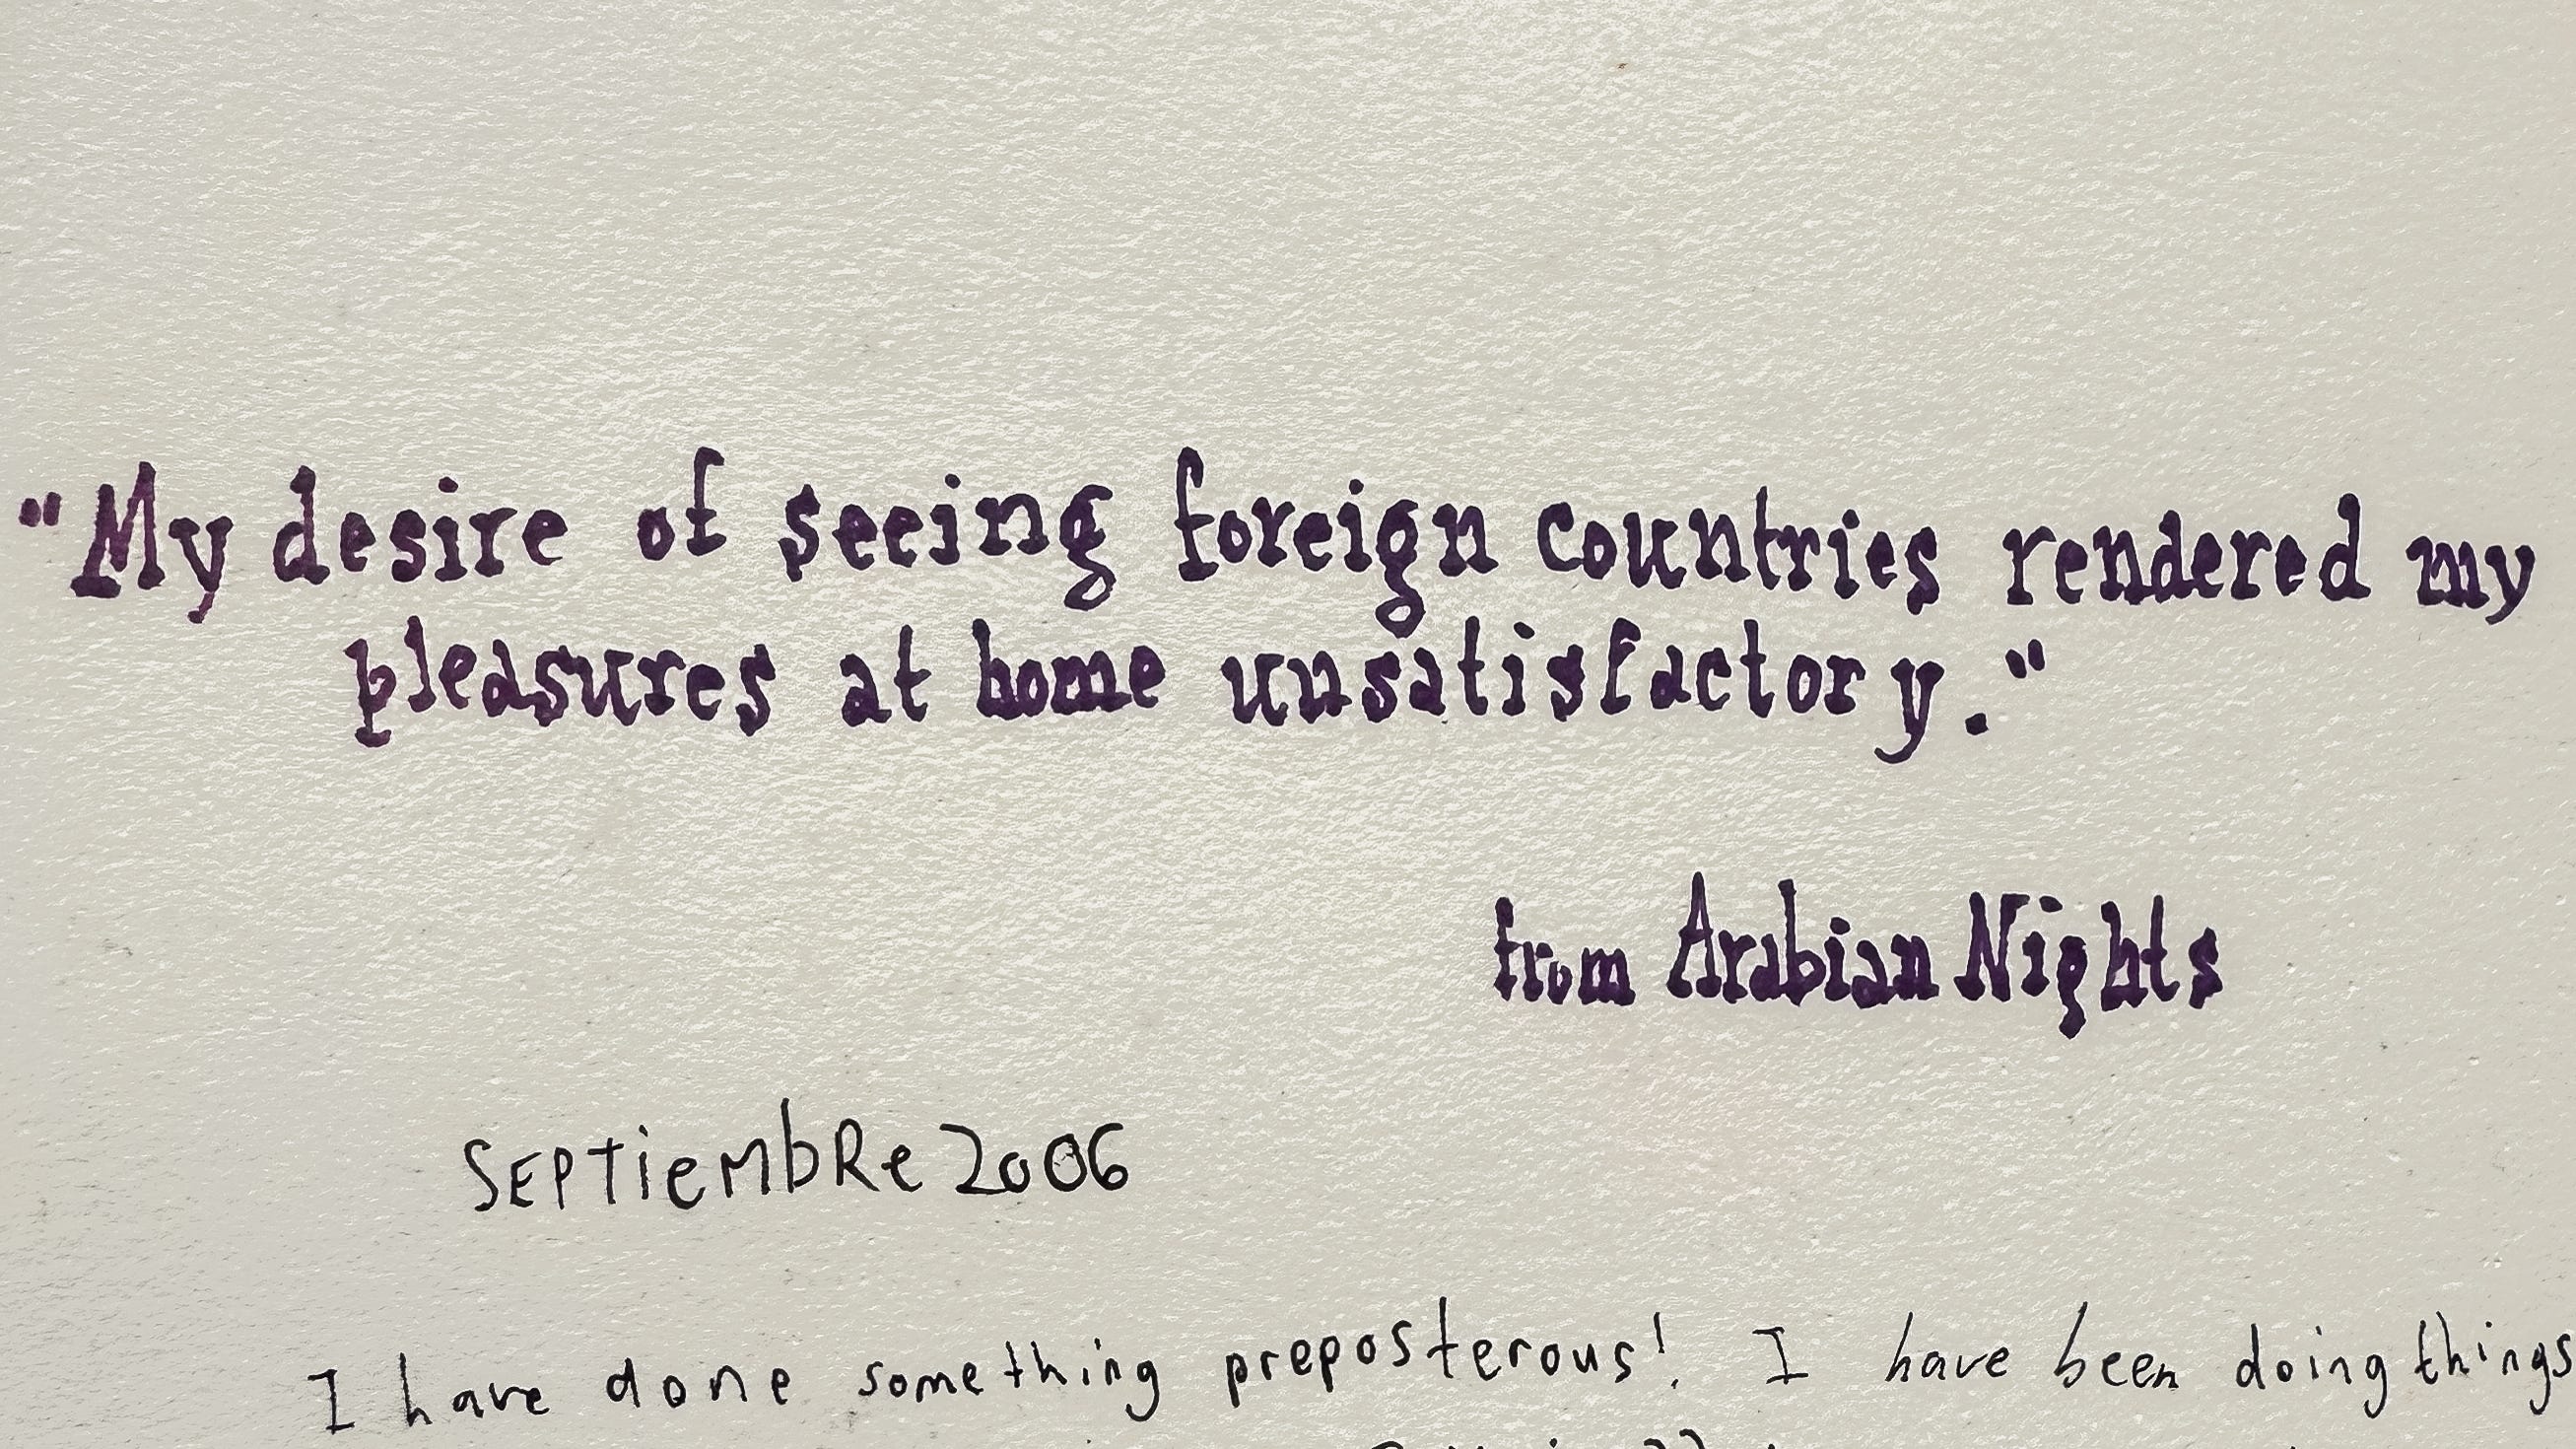 "My desire of seeing foreign countries rendered my
pleasures at home unsatisfactory."
from Arabian Nights
SEPTiEMbRe 2006
I have done something preposterous! I have been doing things